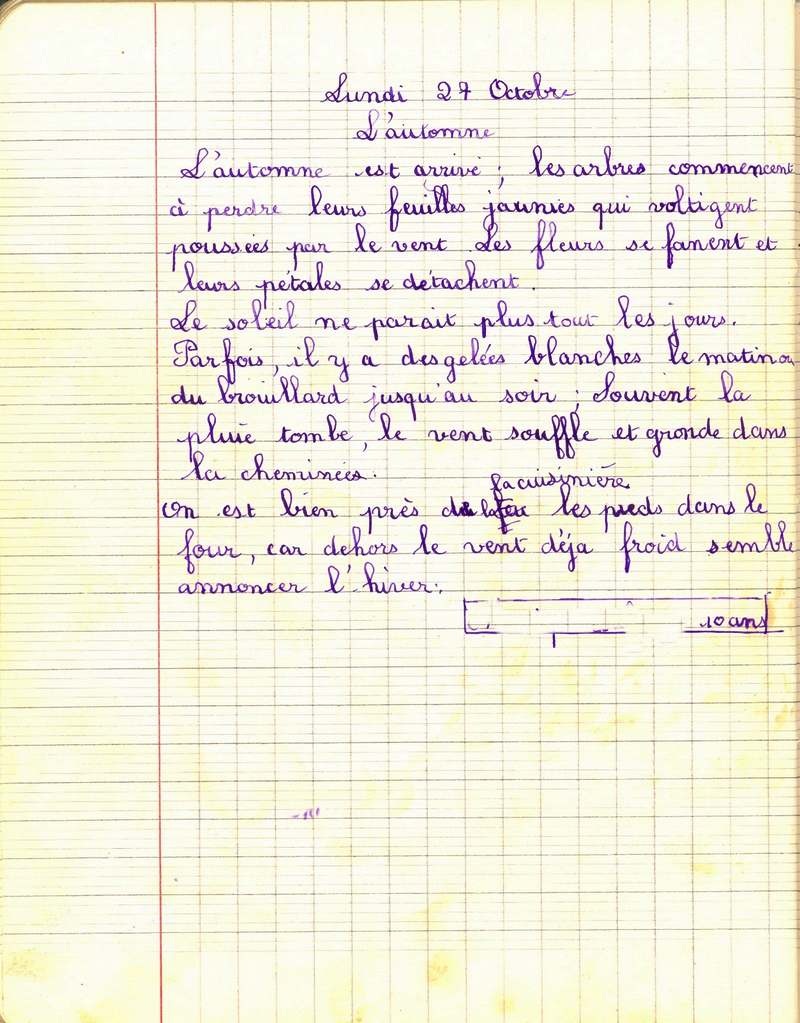 Lundi 27 Octobre
L'automne
L'automne est arrivé ; les arbres commencent
à perdre leurs feuilles jaunies qui voltigent
poussées par le vent Les fleurs se fanent et
leurs pétales se détachent.
Le soleil ne parait plus tout les jours.
Parfois, il y a des gelées blanches le matin ou
du brouillard jusqu'au soir ; Souvent la
pluie tombe, le vent souffle et gronde dans
la cheminées.
la cuisinière
On est bien près de les pieds dans le
four, car dehors le vent déja froid semble
annoncer l'hiver.
10 ans